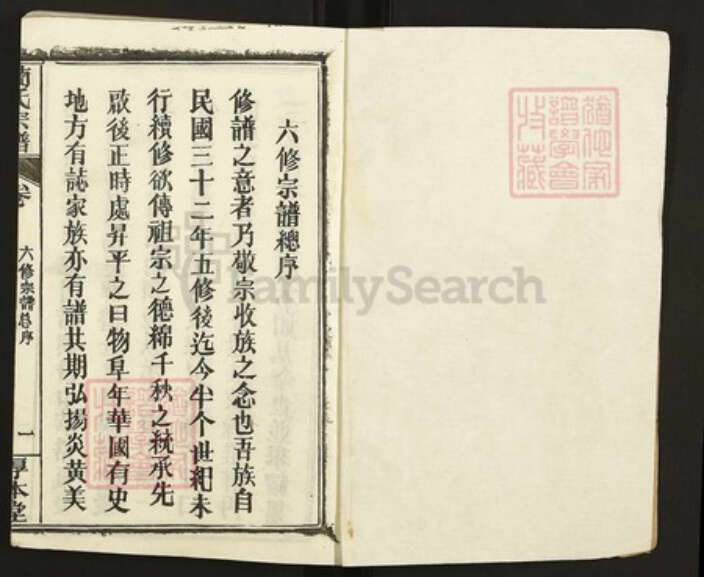 六修宗譜總序
修譜之意者乃敬宗收族之念也吾族自
民國三十二年五修後迄今半个世紀未
行續修欲傳祖宗之德綿千秋之統承先
啟後正時處昇平之日物阜年華國有史
地方有誌家族亦有譜其期弘揚炎黄美
氏宗譜
卷
六修宗譜总序
一
厚本堂
猶他家
譜學會
收藏
FamilySearch